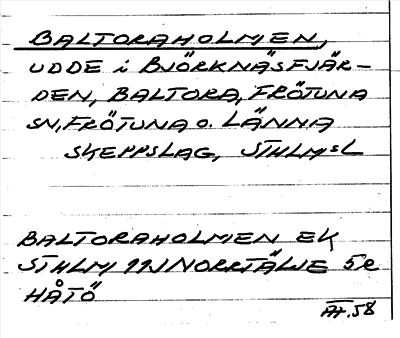 BALTORAHOLMEN,
UDDE i BJÖRKNÄSFJÄR-
DEN, BALTORA, FRÖTUNA
SN, FRÖTUNA o. LÄNNA
SKEPPSLAG, STHLMSL
BALTORAHOLMEN EK
STHLM 11J NORRTÄLJE 5c
HÅTÖ
58